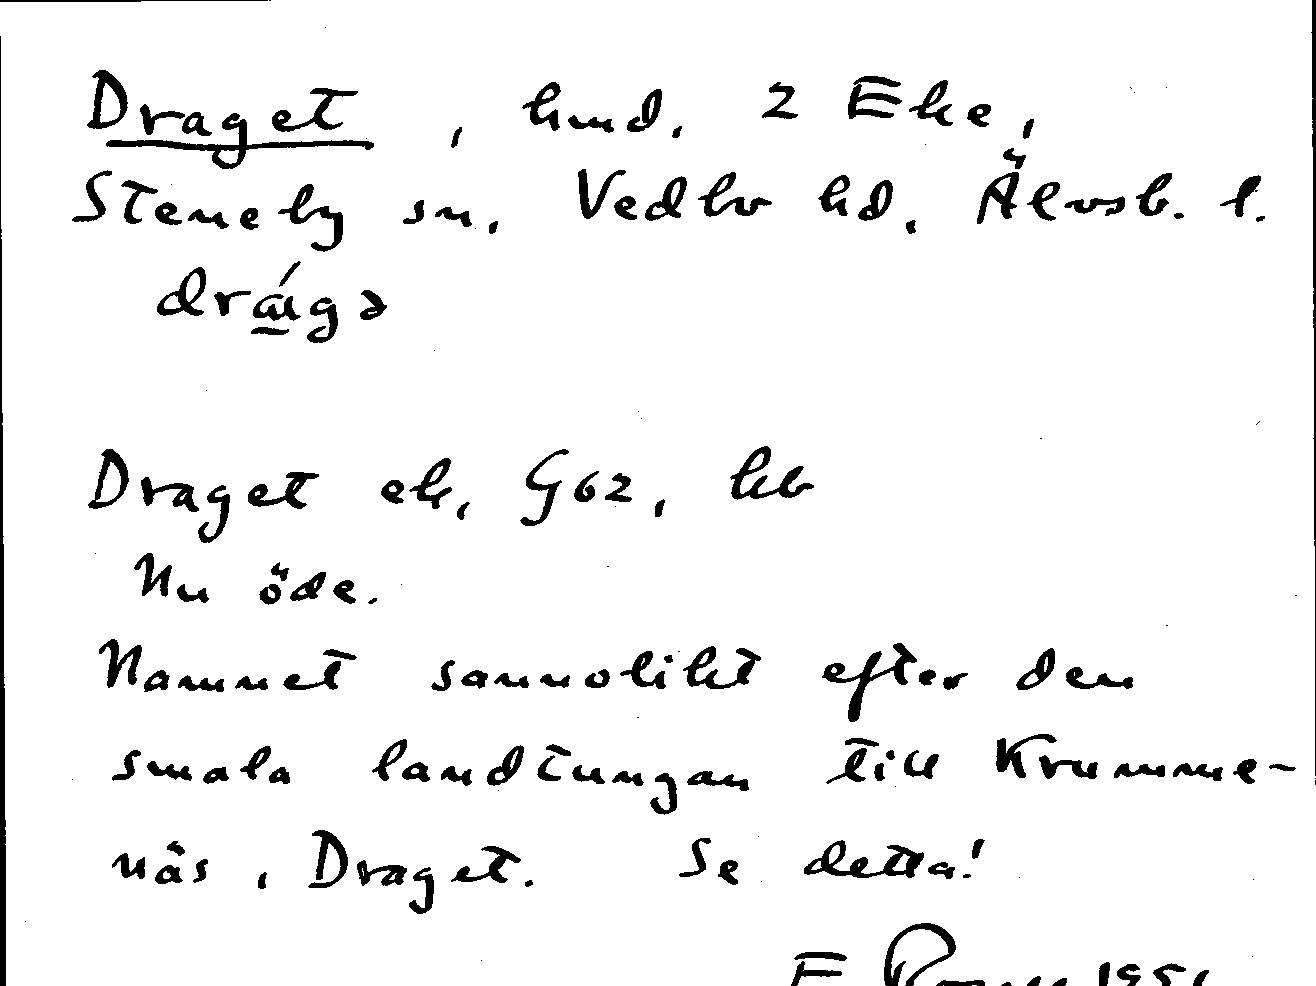 Draget, hmd. 2 Eke,
Steneby sn, Vedbo hd, Älvsb. l.
drágə
Draget ek, G62, kb
Nu öde.
Namnet sannolikt efter den
smala landtungan till Krumme-
näs, Draget. Se detta!
E